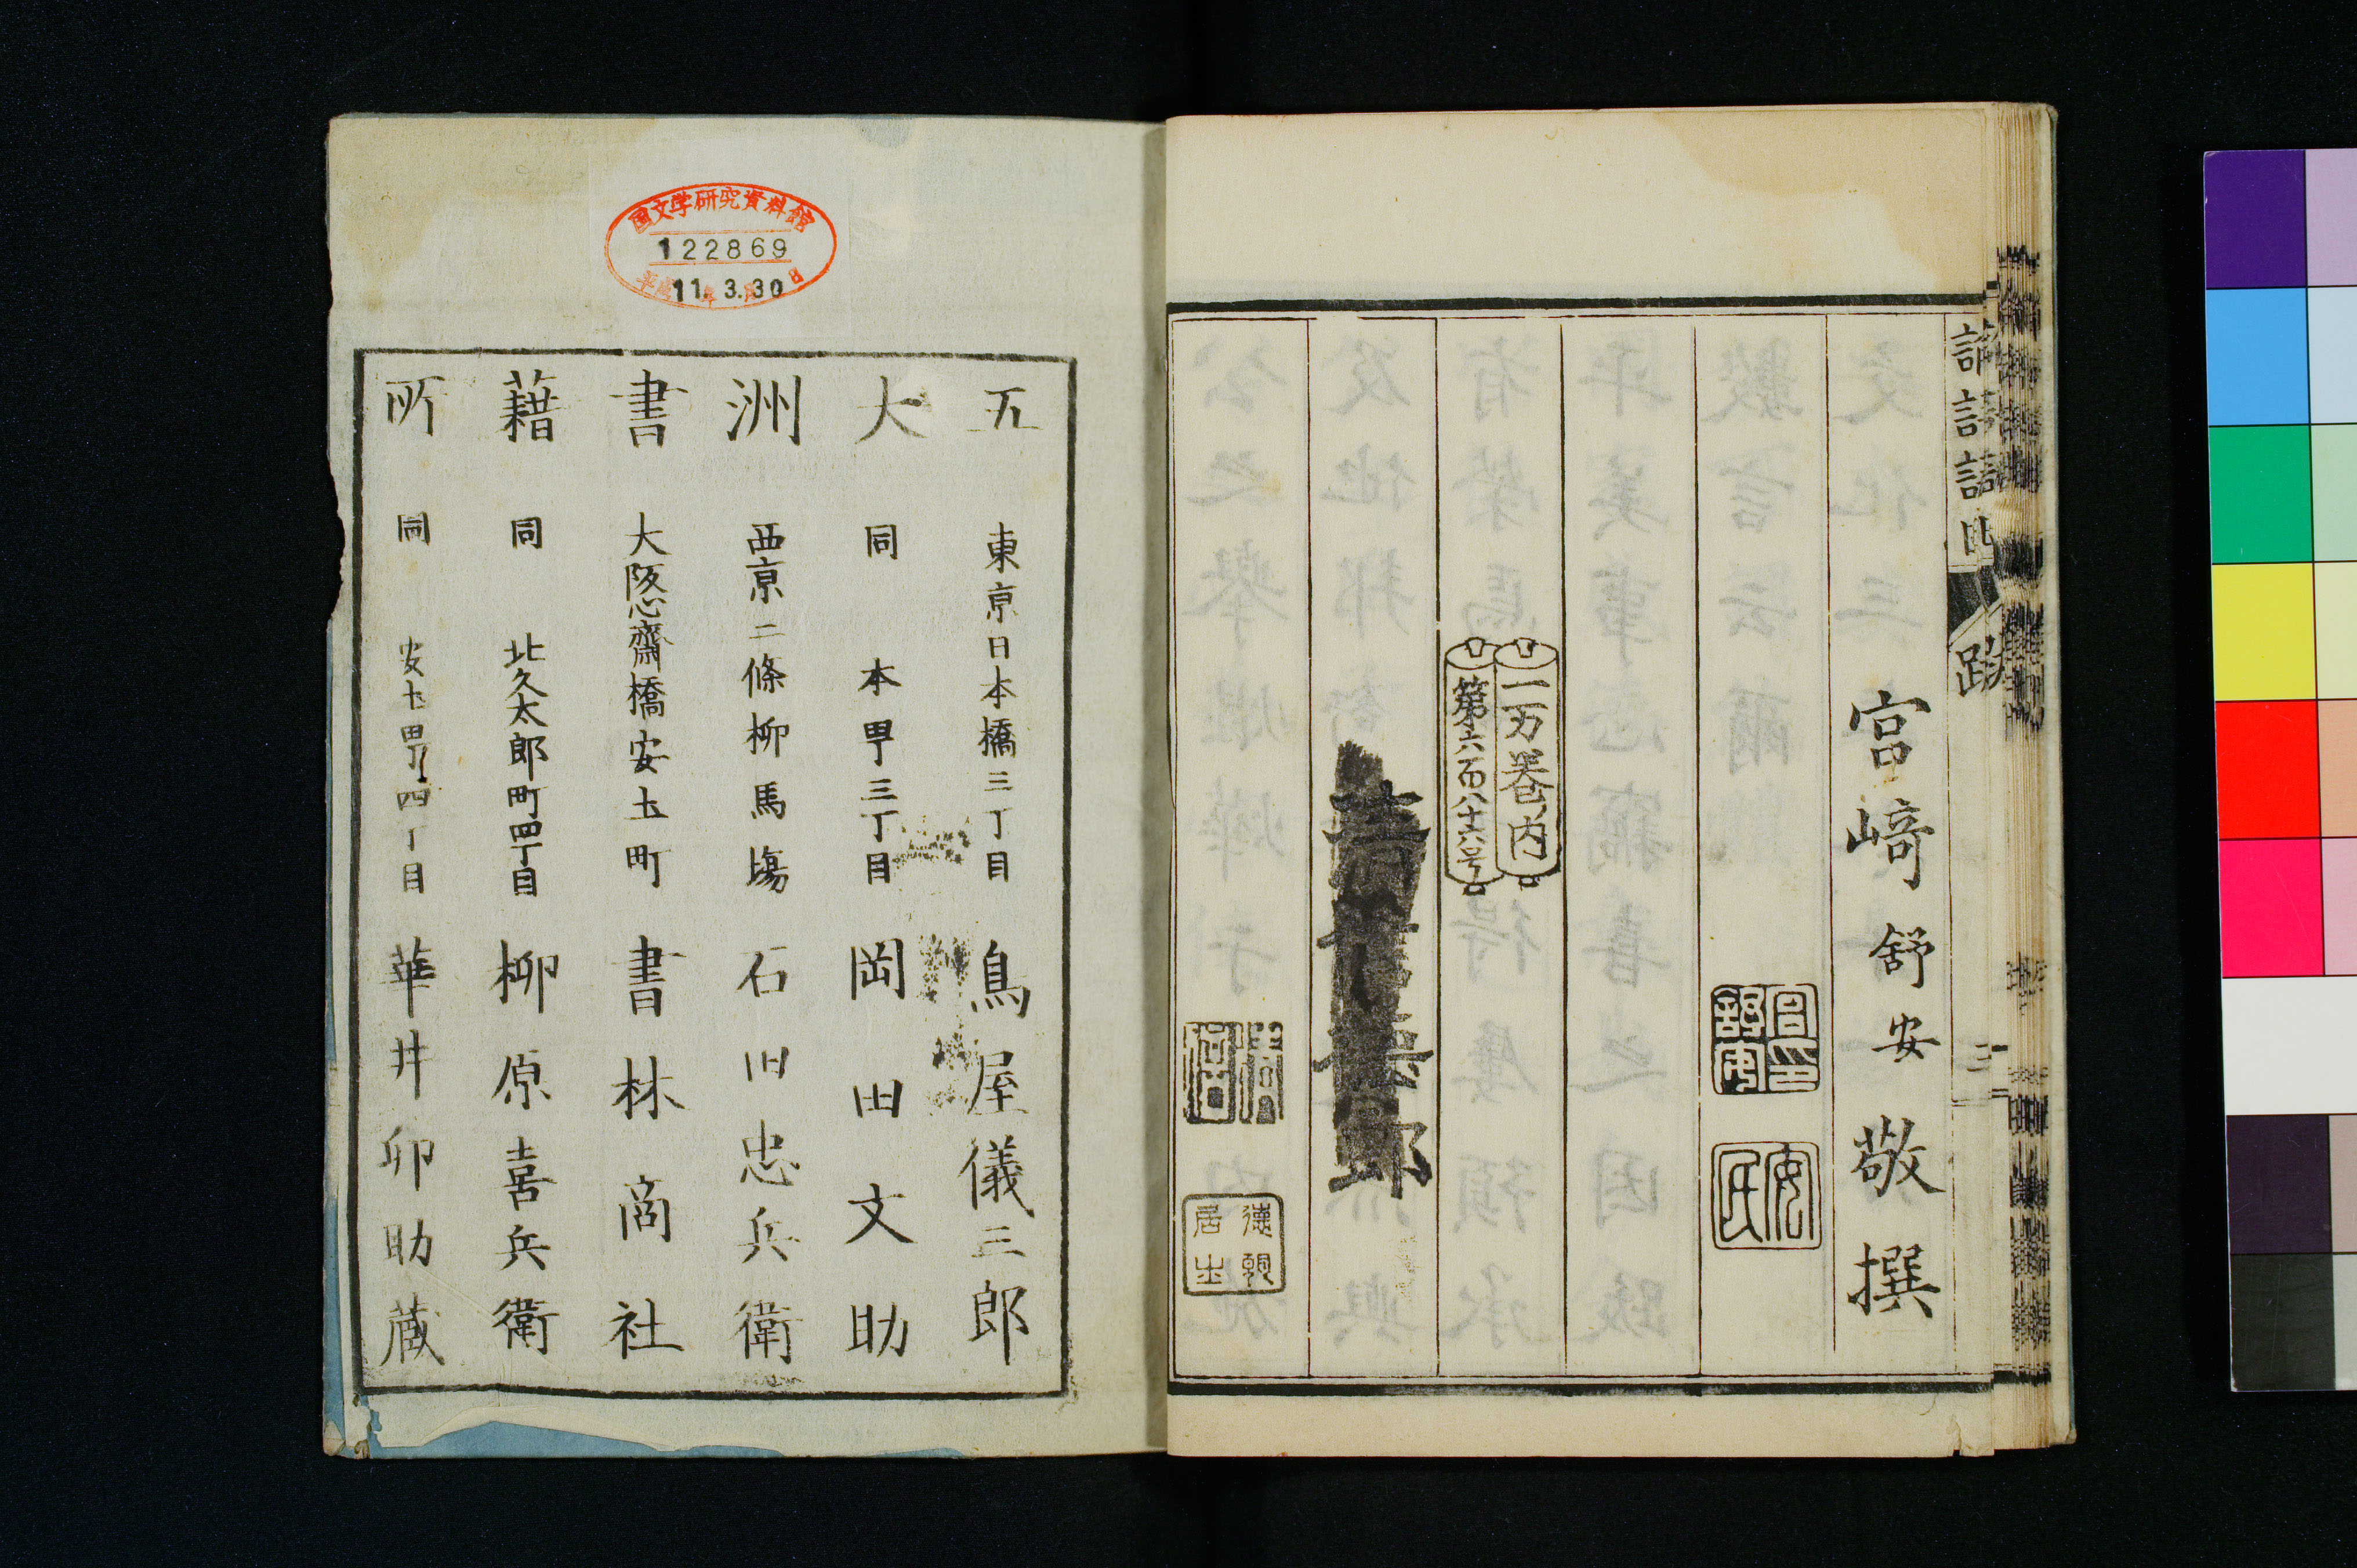 跋
三
富﨑舒安敬撰
安氏
一万巻内
第六百八十六号
国文学研究資料館
122869
11.3.30
五 東京日本橋三丁目 鳥屋儀三郎
大 同 本町三丁目 岡田文助
洲 西京二條柳馬塲 石田忠兵衛
書 大阪心齋橋安土町 書林商社
藉 同 北久太郎町四丁目 柳原喜兵衛
所 同 安土町四丁目 華井卯助蔵